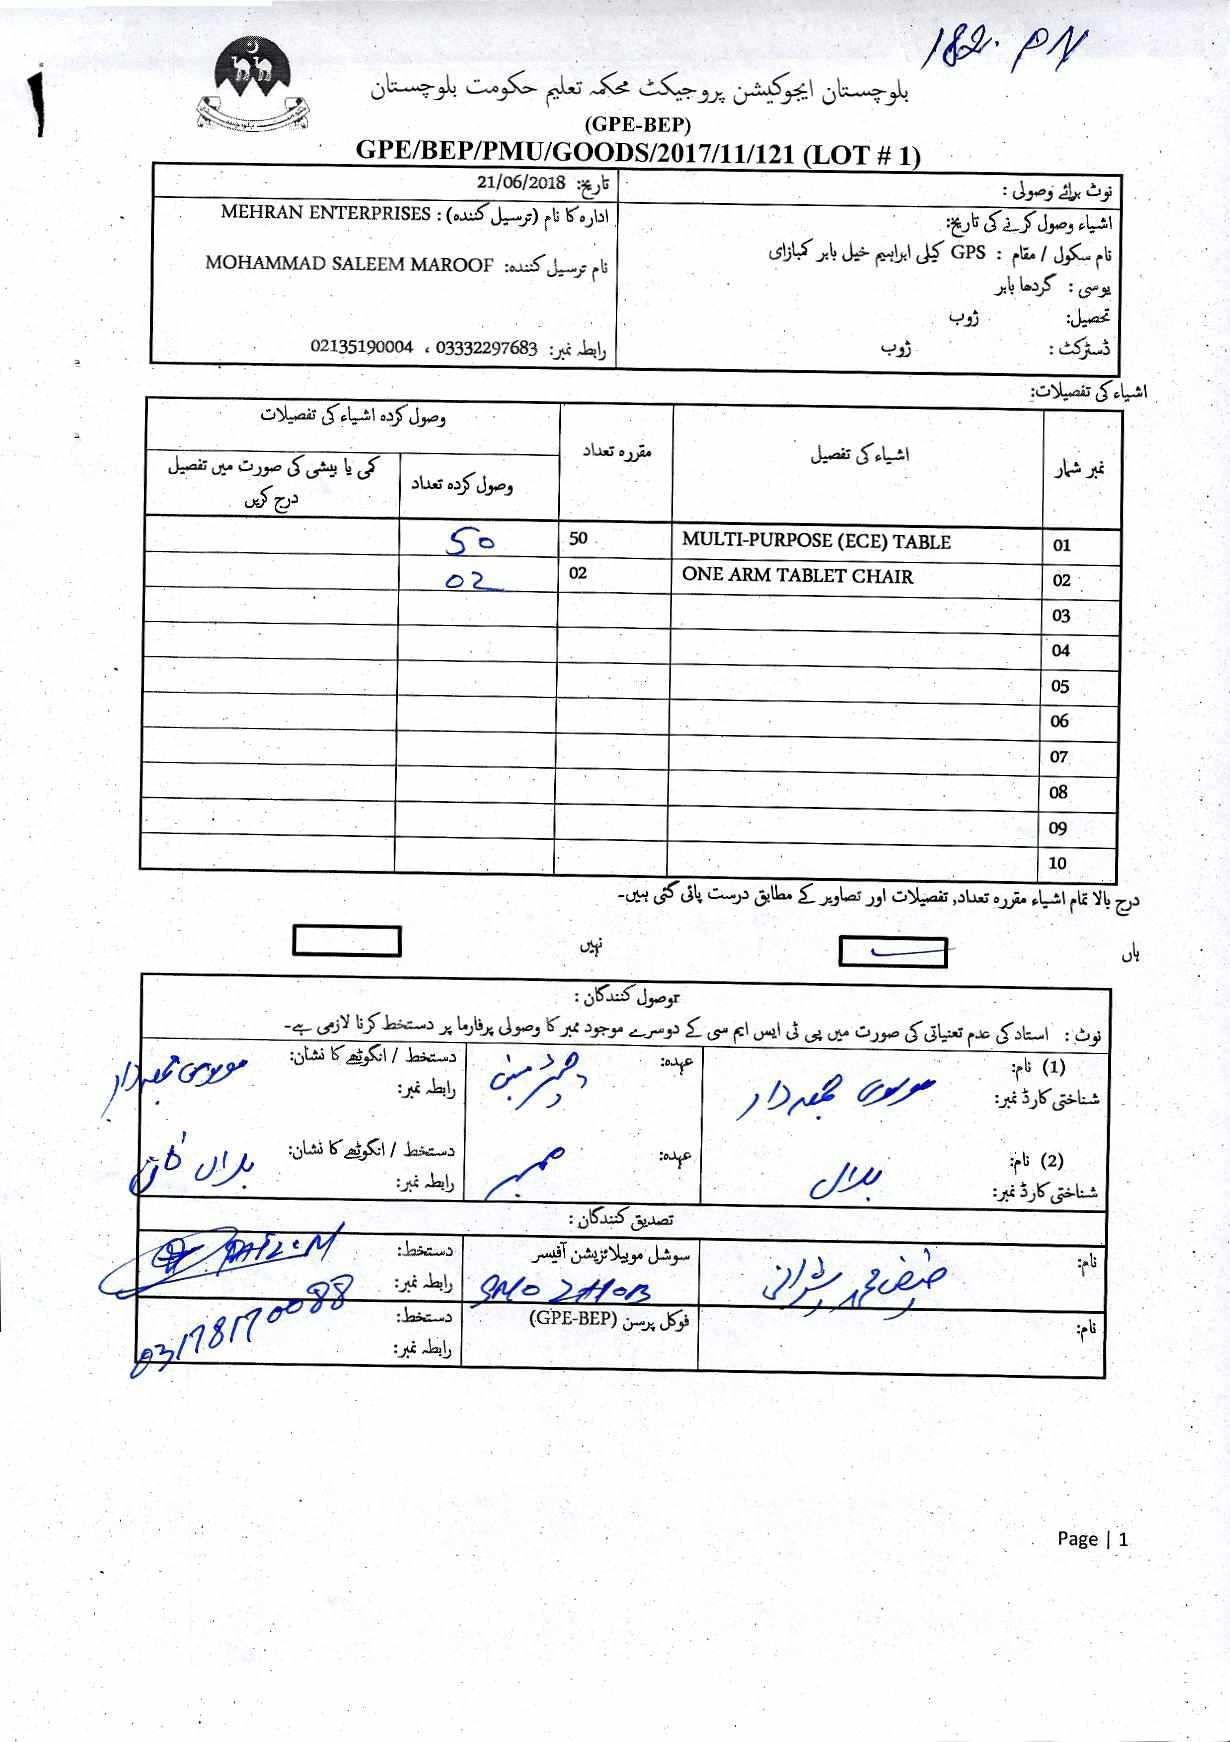 182. PN
بلوچستان ایجوکیشن پروجیکٹ محکمہ تعلیم حکومت بلوچستان
(GPE-BEP)
GPE/BEP/PMU/GOODS/2017/11/121 (LOT # 1)
نوٹ برائے وصولی :
اشیاء وصول کرنے کی تاریخ:
نام سکول / مقام : GPS کیلی ابراہیم خیل بابر کمبازای
یوسی : گردھا بابر
تحصیل: ژوب
ڈسٹرکٹ : ژوب
تاریخ: 21/06/2018
ادارہ کا نام (ترسیل کنندہ) : MEHRAN ENTERPRISES
نام ترسیل کنندہ: MOHAMMAD SALEEM MAROOF
رابطہ نمبر: 03332297683 ، 02135190004
اشیاء کی تفصیلات:
نمبر شمار اشیاء کی تفصیل مقررہ تعداد وصول کردہ اشیاء کی تفصیلات
وصول کردہ تعداد کمی یا بیشی کی صورت میں تفصیل درج کریں
01 MULTI-PURPOSE (ECE) TABLE 50 50
02 ONE ARM TABLET CHAIR 02 02
03
04
05
06
07
08
09
10
درج بالا تمام اشیاء مقررہ تعداد, تفصیلات اور تصاویر کے مطابق درست پائی گئی ہیں۔
ہاں نہیں
وصول کنندگان :
نوٹ : استاد کی عدم تعنیاتی کی صورت میں پی ٹی ایس ایم سی کے دوسرے موجود ممبر کا وصولی پرفارما پر دستخط کرنا لازمی ہے۔
(1) نام: موسی جمعدار عہدہ: چیئرمین دستخط / انگوٹھے کا نشان: موسی جمعدار
شناختی کارڈ نمبر: رابطہ نمبر:
(2) نام: بلال عہدہ: ممبر دستخط / انگوٹھے کا نشان: بلال
شناختی کارڈ نمبر: رابطہ نمبر:
تصدیق کنندگان :
نام: شیرانی سوشل موبیلائزیشن آفیسر دستخط:
SMO ZHOB رابطہ نمبر: 03178170088
نام: فوکل پرسن (GPE-BEP) دستخط:
رابطہ نمبر:
Page | 1